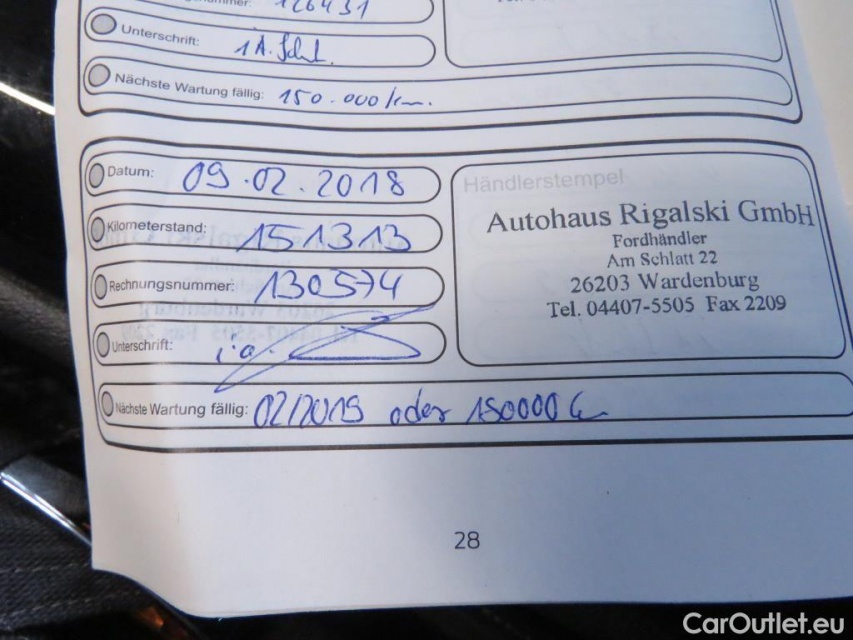 126431
Unterschrift: i.A. Schl.
Nächste Wartung fällig: 150.000 km.
Datum: 09.02.2018
Händlerstempel
Autohaus Rigalski GmbH
Fordhändler
Am Schlatt 22
26203 Wardenburg
Tel. 04407-5505 Fax 2209
Kilometerstand: 151313
Rechnungsnummer: 130574
Unterschrift: i.a.
Nächste Wartung fällig: 02/2019 oder 180000 km
28
CarOutlet.eu